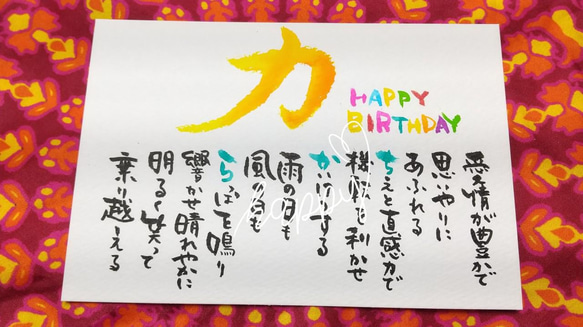 力
HAPPY
BIRTHDAY
表情が豊かで
思いやりに
あふれる
ちえと直感力で
機転を利かせ
かいけつする
雨の日も
風の日も
らっぱを鳴り
響かせ晴れやかに
明るく笑って
乗り越える
happy